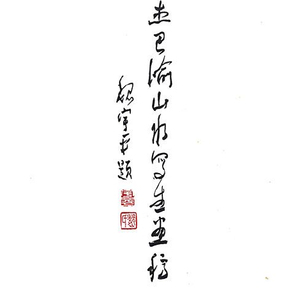 杰巴渝山水写生画稿
魏宇平题